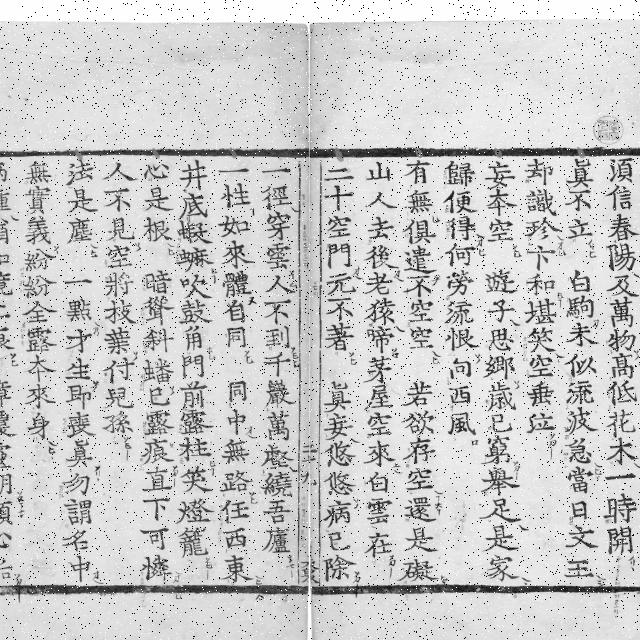 須信春陽及萬物高低花木一時開
真不立 白駒未似流波急當日文王
却識珍卞和堪笑空垂泣
妄本空 遊子思郷歳已窮舉足是家
歸便得何勞流恨向西風
有無俱遣不空空 若欲存空還是礙
山人去後老猿啼茅屋空來白雲在
二十空門元不著 真妄悠悠病已除
一徑穿雲人不到千巖萬壑繞吾廬
一性如來體自同 同中無路任西東
井底蝦蟆吹鼓角門前露柱笑燈籠
心是根 暗聳斜蟠已露痕直下可憐
人不見空將技葉付兒孫
法是塵 一點才生即喪眞勿謂名中
無實義紛紛全露本來身